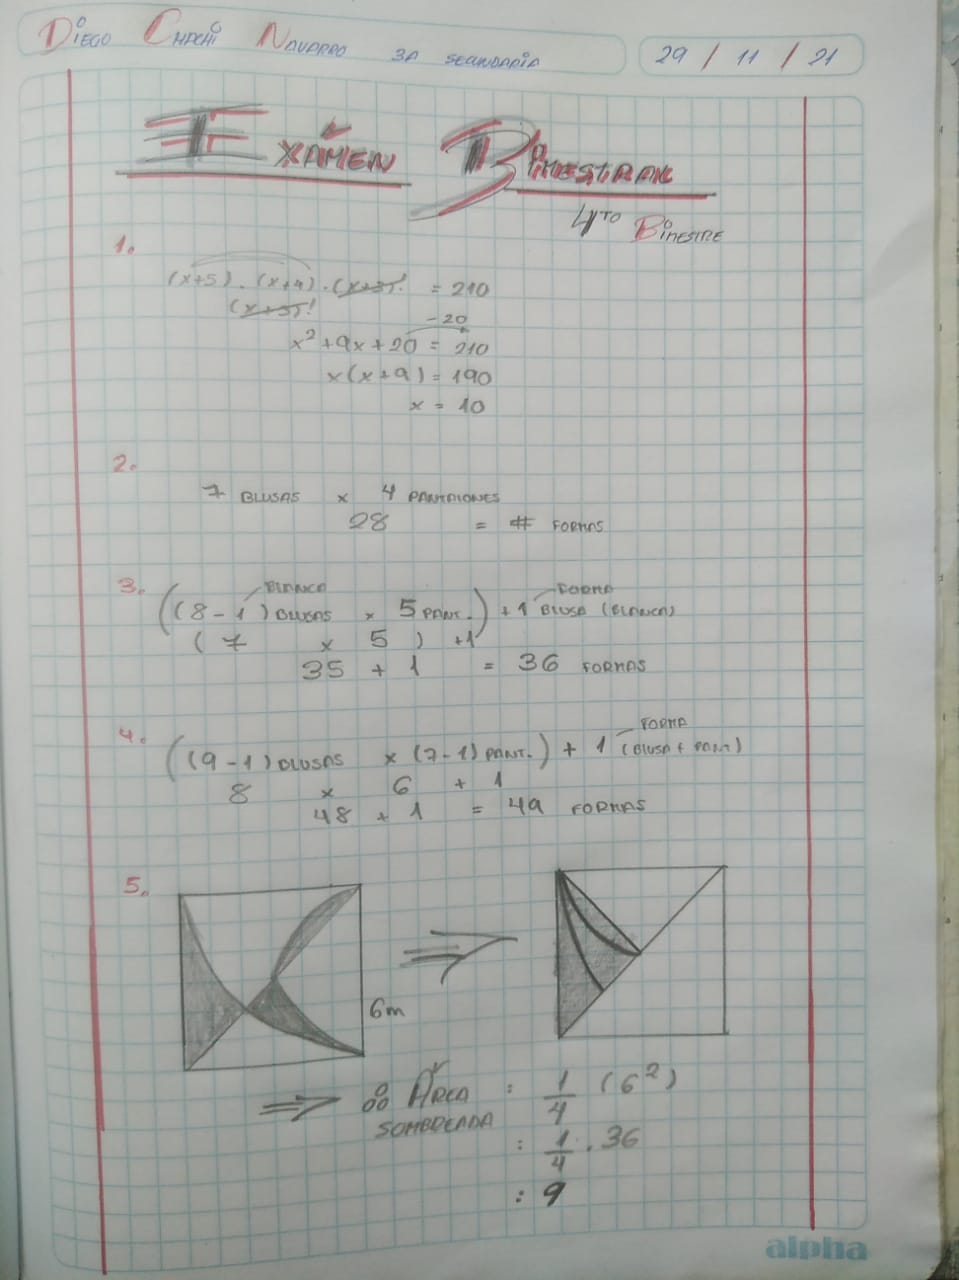 DIEGO CHACHI NAVARRO 3A SECUNDARIA 29 / 11 / 21
EXÁMEN BIMESTRAL
4TO BIMESTRE
1.
(x+5) . (x+4) . (x+3)! = 210
(x+3)!
-20
x² + 9x + 20 = 210
x(x+9) = 190
x = 10
2.
7 BLUSAS x 4 PANTALONES
28 = # FORMAS
BLANCA FORMA
3. ((8-1) BLUSAS x 5 PANT.) + 1 BLUSA (BLANCA)
(7 x 5) +1
35 + 1 = 36 FORMAS
FORMA
4. ((9-1) BLUSAS x (7-1) PANT.) + 1 (BLUSA + PANT)
8 x 6 + 1
48 + 1 = 49 FORMAS
5.
6m
ÁREA : 1/4 (6²)
SOMBREADA
: 1/4 . 36
: 9
alpha